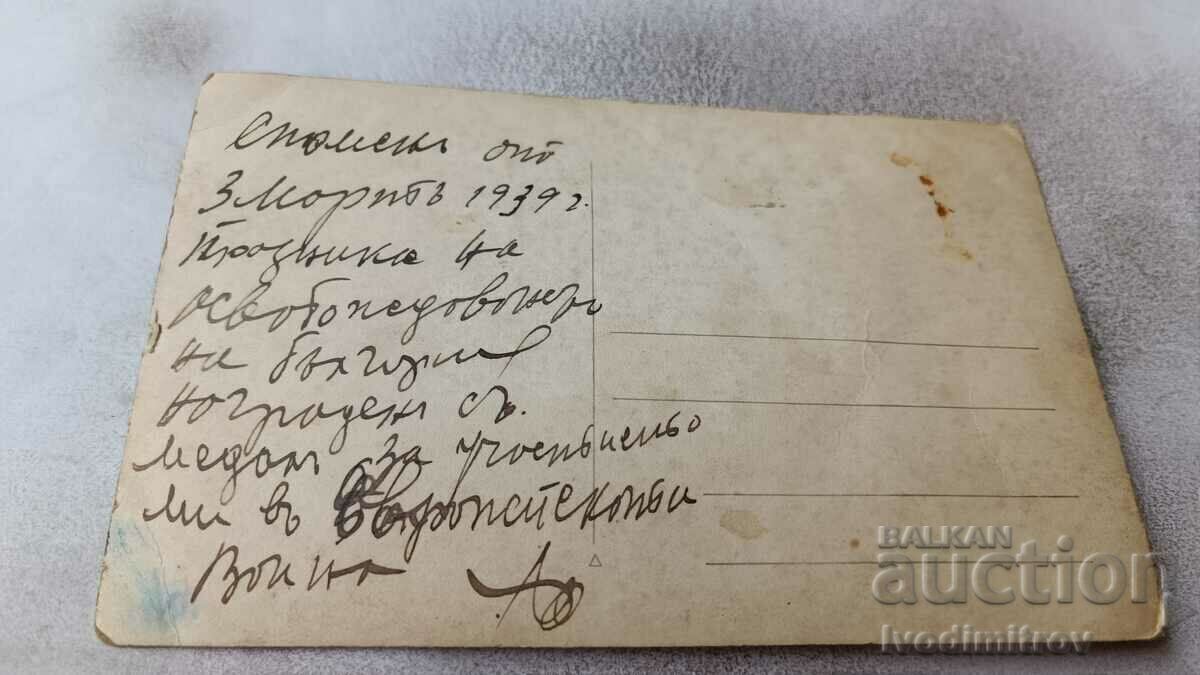 Споменъ отъ
3 Мартъ 1939 г.
Празника на
освобождованьето
на България
Награденъ съ
медалъ за участието
ми въ Европейската
Война
BALKAN
auction
Ivodimitrov